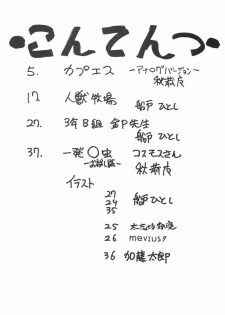 •こんてんつ•
5. カプエス
ーアナログバージョンー
秋葉虎
17 人獣牧場
船戸ひとし
27. 3年B組 金P先生
船戸ひとし
37. 一発〇虫
コスモスさん
秋葉虎
イラスト
27
24
35
船戸ひとし
25
26 mevius9
36 加護太郎